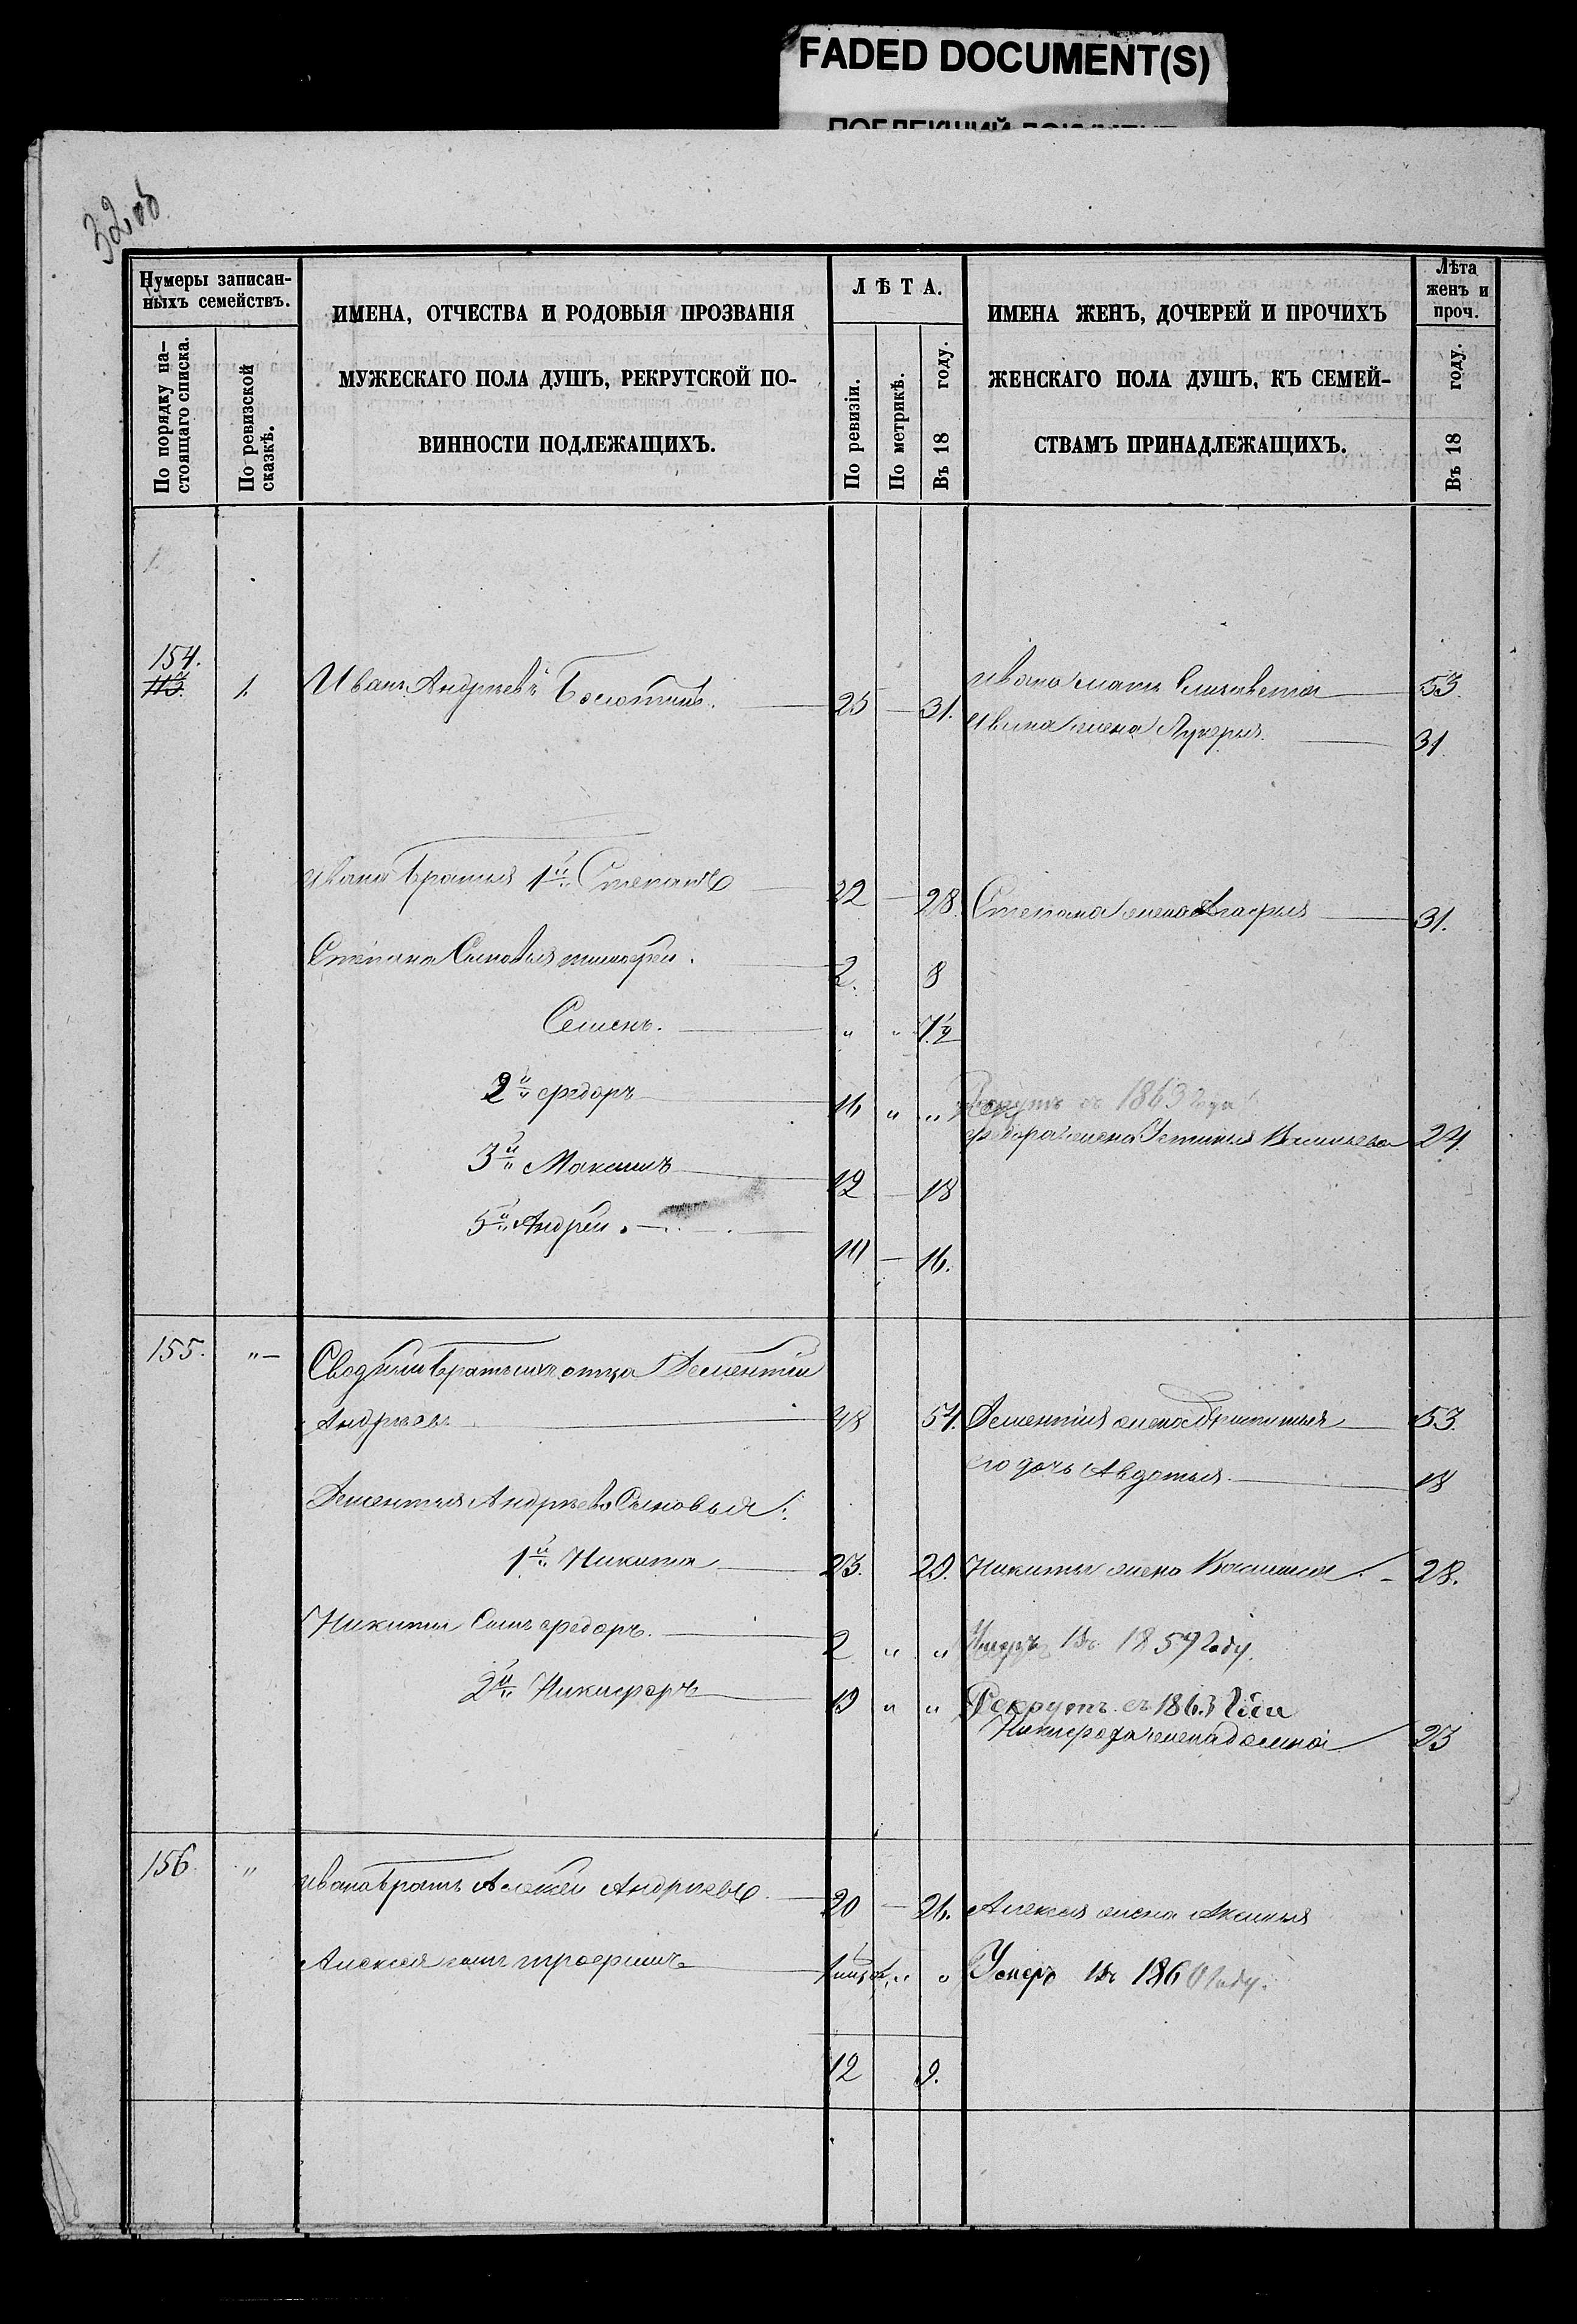 FADED DOCUMENT(S)
ПОБЛЕКШИЙ ДОКУМЕНТ
32 об
Нумеры записан-
ныхъ семействъ.
По порядку на-
стоящаго списка.
По ревизской
сказкѣ.
ИМЕНА, ОТЧЕСТВА И РОДОВЫЯ ПРОЗВАНІЯ
МУЖЕСКАГО ПОЛА ДУШЪ, РЕКРУТСКОЙ ПО-
ВИННОСТИ ПОДЛЕЖАЩИХЪ.
ЛѢТА.
По ревизіи.
По метрикѣ.
Въ 18 году.
ИМЕНА ЖЕНЪ, ДОЧЕРЕЙ И ПРОЧИХЪ
ЖЕНСКАГО ПОЛА ДУШЪ, КЪ СЕМЕЙ-
СТВАМЪ ПРИНАДЛЕЖАЩИХЪ.
Лѣта
женъ и
проч.
Въ 18 году.
154. 1. Иванъ Андреевъ 25 — 31. Ивана мать Елизавета 53.
Ивана жена Лукерья 31
Ивана братья 1й Степанъ 22 — 28 Степана жена Агафья 31.
Степана Сыновья Тимофей 2. 8
Семенъ. " " 7½
2й Федоръ 16 " " Рекрутъ съ 1863 года
Федора жена Устинья Васильева 24.
3й Максимъ 12 — 18
5й Андрей 10 — 16.
155. " Сводный братъ ихъ отца Дементій
Андреевъ 48 54. Дементія жена 53.
его дочь Авдотья 18
Дементья Андреева Сыновья:
1й Никита 23. 29. Никиты жена Василиса 28.
Никиты Сынъ Федоръ. 2 " " Умеръ Въ 1859 Году.
2й Никифоръ 19 " " Рекрутъ съ 1863 Года
Никифора жена Домна 23
156 " Ивана братъ Алексей Андреевъ 20 — 26. Алексея жена Аксинья
Алексея сынъ Трофимъ " " Умеръ Въ 1860 Году.
12 9.